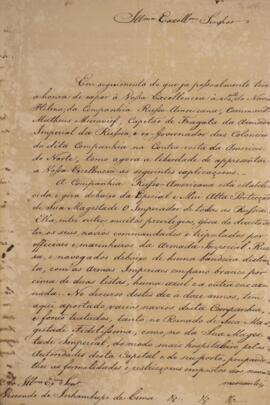 Illmo. Excellmo. Senhor
Em seguimento do que já pessoalmente tive
a honra de expor à Vossa Excellencia o do Navio
Helena, da Companhia Russo-Americana, Commandante
Matheus Muravief, Capitão de Fragata da Armada
Imperial da Russia, e ex-Governador das Colonias
da dita Companhia na Contra-costa da America
do Norte, tomo agora a liberdade de appresentar
a Vossa Excellencia as seguintes explicaçoens.
A Companhia Russo-Americana esta estabele-
cida, e gira debaixo da Especial e Mui Alta Protecção
de Sua Magestade O Imperador de todas as Russias.
Ella, entre outros muitos privilegios, goza de
os seus navios commandados e tripulados por
officiaes e marinheiros da Armada Imperial Rus-
sa, e navegados debaixo de huma bandeira distinc-
ta, com as Armas Imperiaes em campo branco por
cima de duas listas, huma azul e a outra encar-
nada. No decurso destes dez a doze annos, tem
aqui aportado varios navios desta Companhia,
e forão tratados, tanto no Reinado de Sua Ma-
gestade Fidelissima, como no da Sua Mages-
tade Imperial, do modo mais hospitaleiro pelas
Autoridades desta Capital e do seu porto,
as formalidades e restricçoens impostas aos
mercantes
Ao Illmo. Exmo. Snr.
Visconde de Inhambupe de Cima &c. &c. &c.